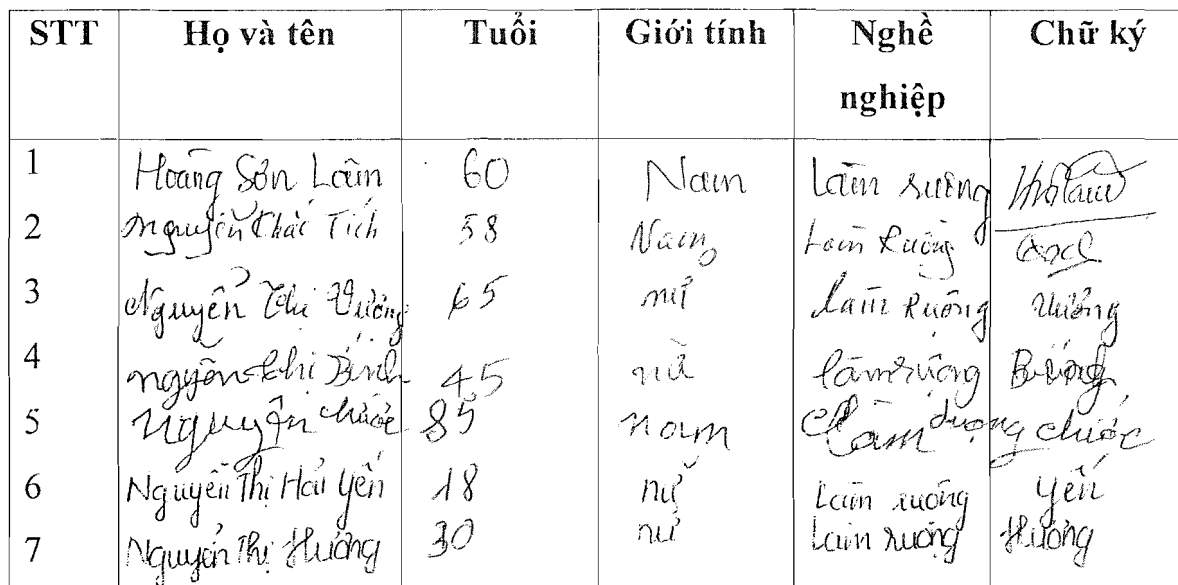 STT Họ và tên Tuổi Giới tính Nghề nghiệp Chữ ký
1 Hoàng Sơn Lâm 60 Nam Làm ruộng
2 Nguyễn Khắc Tích 58 Nam Làm Ruộng
3 Nguyễn Thị Vương 65 nữ Làm Ruộng Vương
4 nguyễn thị Bính 45 nữ làm ruộng
5 nguyễn chước 85 nam Làm chước
6 Nguyễn Thị Hải Yến 18 nữ Làm ruộng Yến
7 Nguyễn Thị Hương 30 nữ Làm ruộng Hương